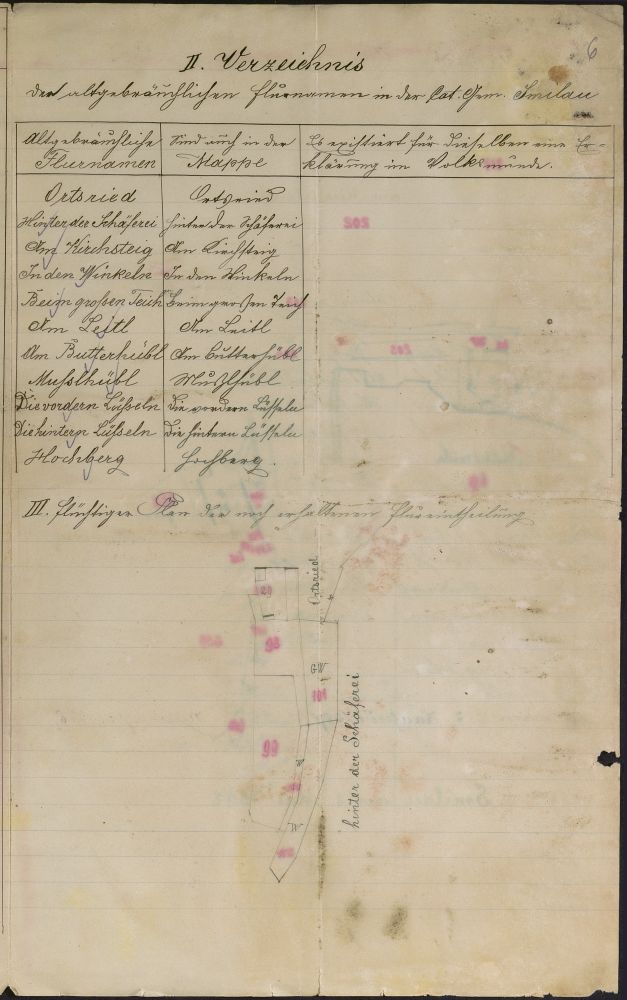 6
II. Verzeichnis
der altgebräuchlichen Flurnamen in der Cat. Gem. Smilau
Altgebräuchliche Flurnamen
Sind auch in der Mappe
Es existiert für dieselben eine Erklärung im Volksmunde.
Ortsried Ortsried
Hinter der Schäferei Hinter der Schäferei
Am Kirchsteig Am Kirchsteig
In den Winkeln In den Winkeln
Beim großen Teich Beim großen Teich
Am Leitl Am Leitl
Am Butterhübl Am Butterhübl
Musslhübl Mußlhübl
Die vordern Lüsseln Die vordern Lüsseln
Die hintern Lüsseln Die hintern Lüsseln
Hochberg Hochberg.
III. Flüchtiger Plan der noch erhaltenen Flureintheilung
Ortsried
120
98
GW
101
99
W
W
hinter der Schäferei